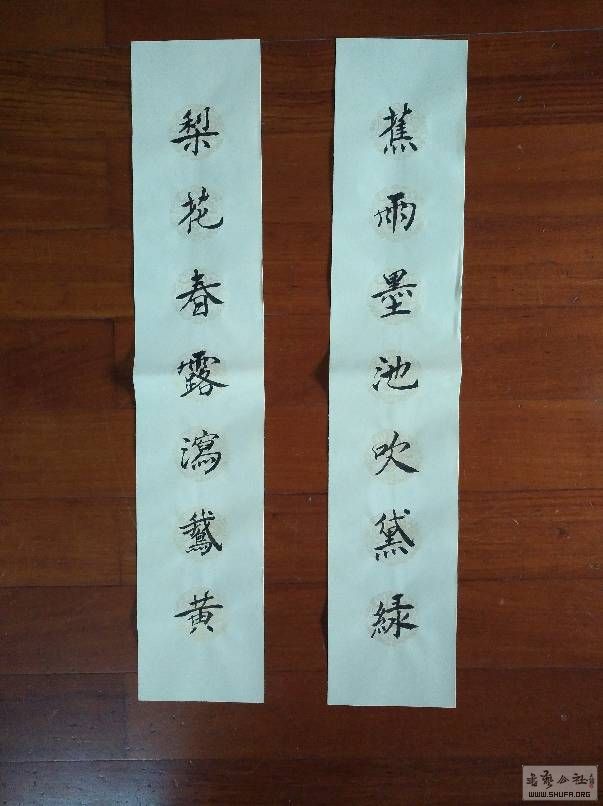 蕉雨墨池吹黛綠
梨花春露瀉鵝黄
书艺公社
WWW.SHUFA.ORG